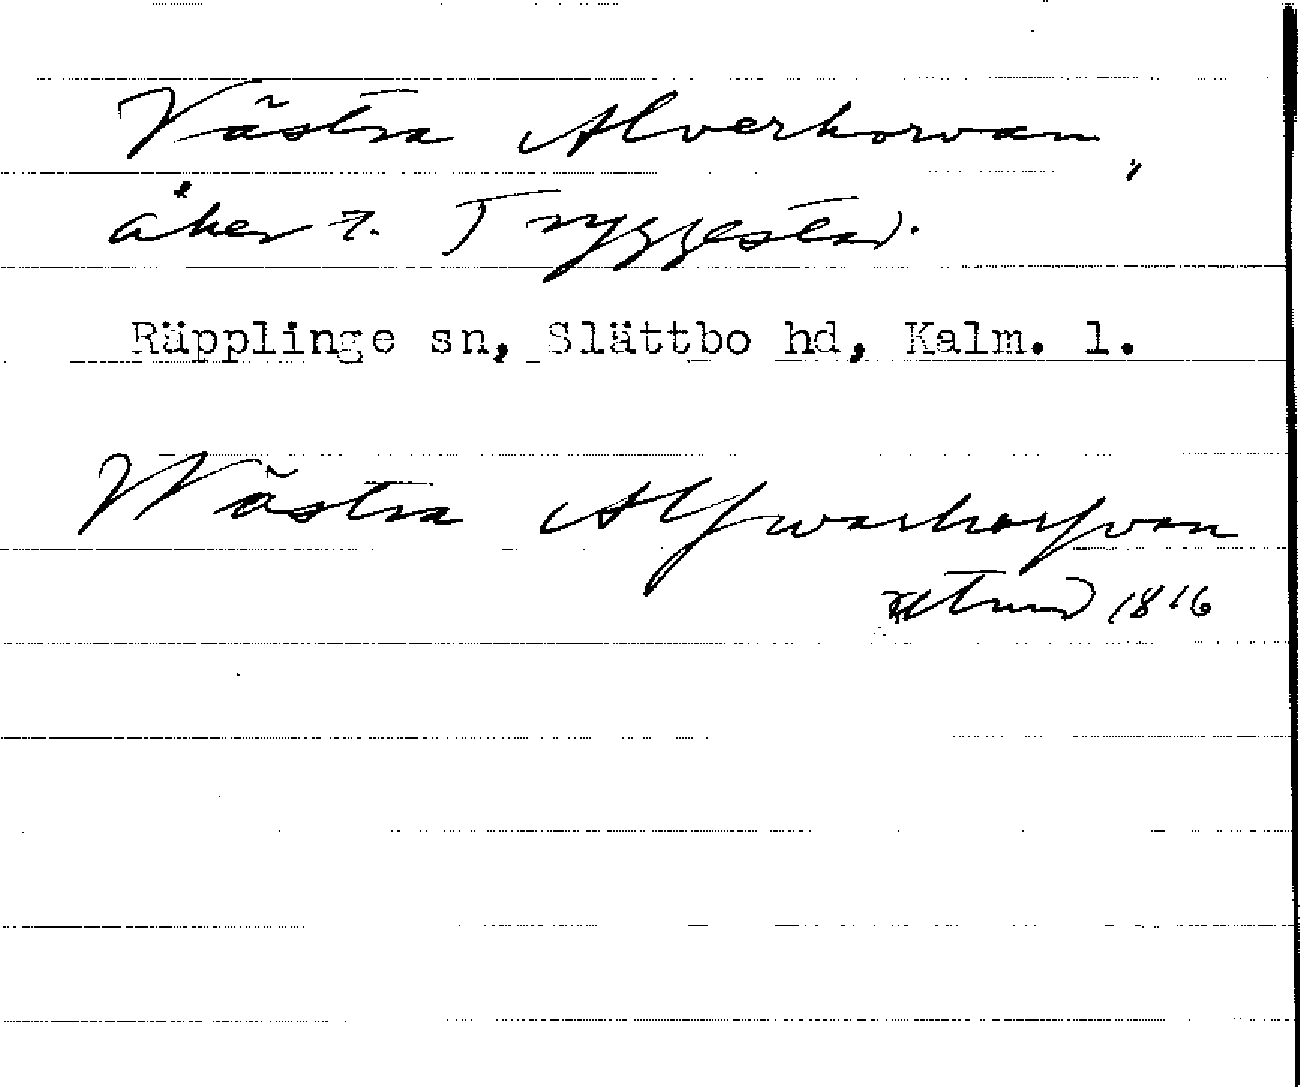 Västra Alverkorvan,
åker t. Tryggestad.
Räpplinge sn, Slättbo hd, Kalm. l.
Wästra Alfwarkorfvan
1816